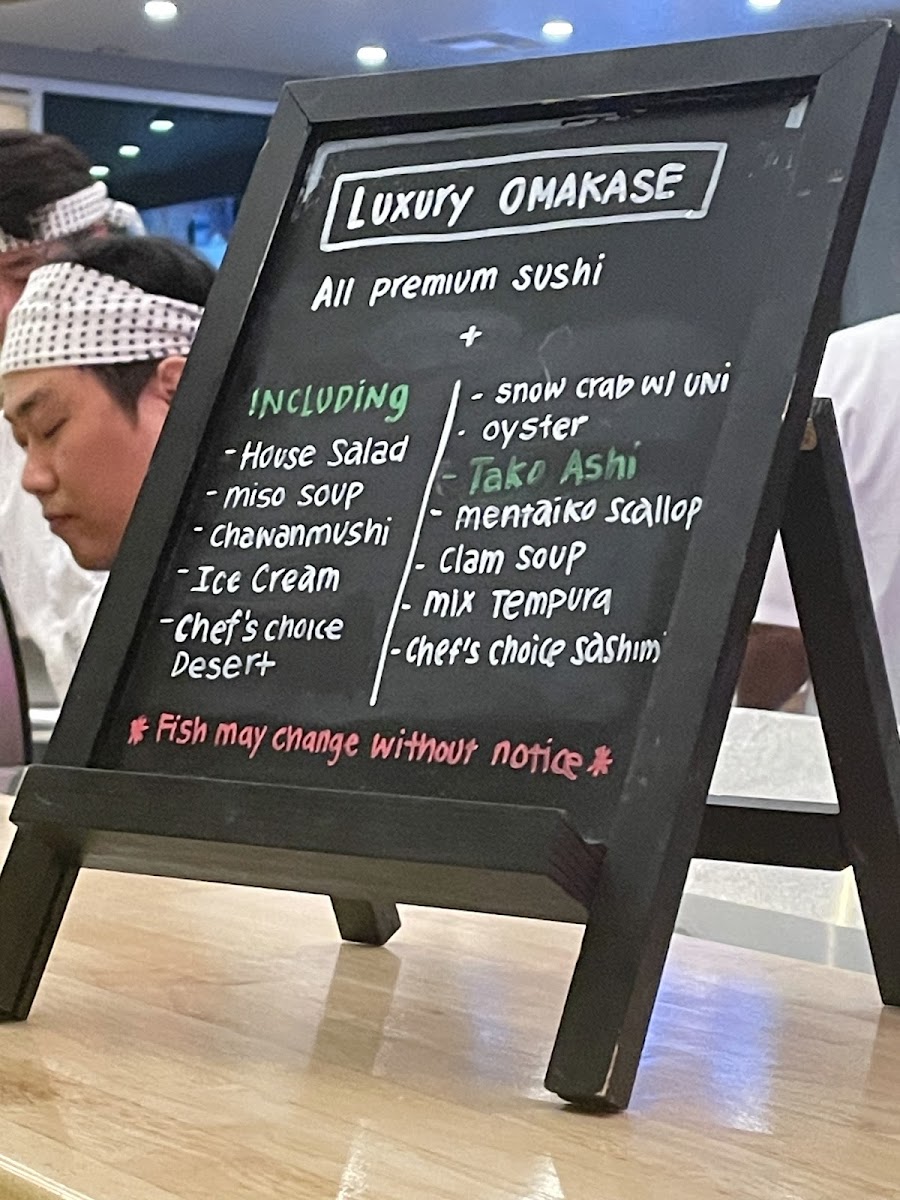 Luxury OMAKASE
All premium sushi
+
INCLUDING
- House Salad
- miso soup
- chawanmushi
- Ice Cream
- Chef's choice
Desert
- snow crab w/ UNI
- oyster
- Tako Ashi
- mentaiko scallop
- Clam soup
- mix Tempura
- Chef's choice sashimi
* Fish may change without notice *